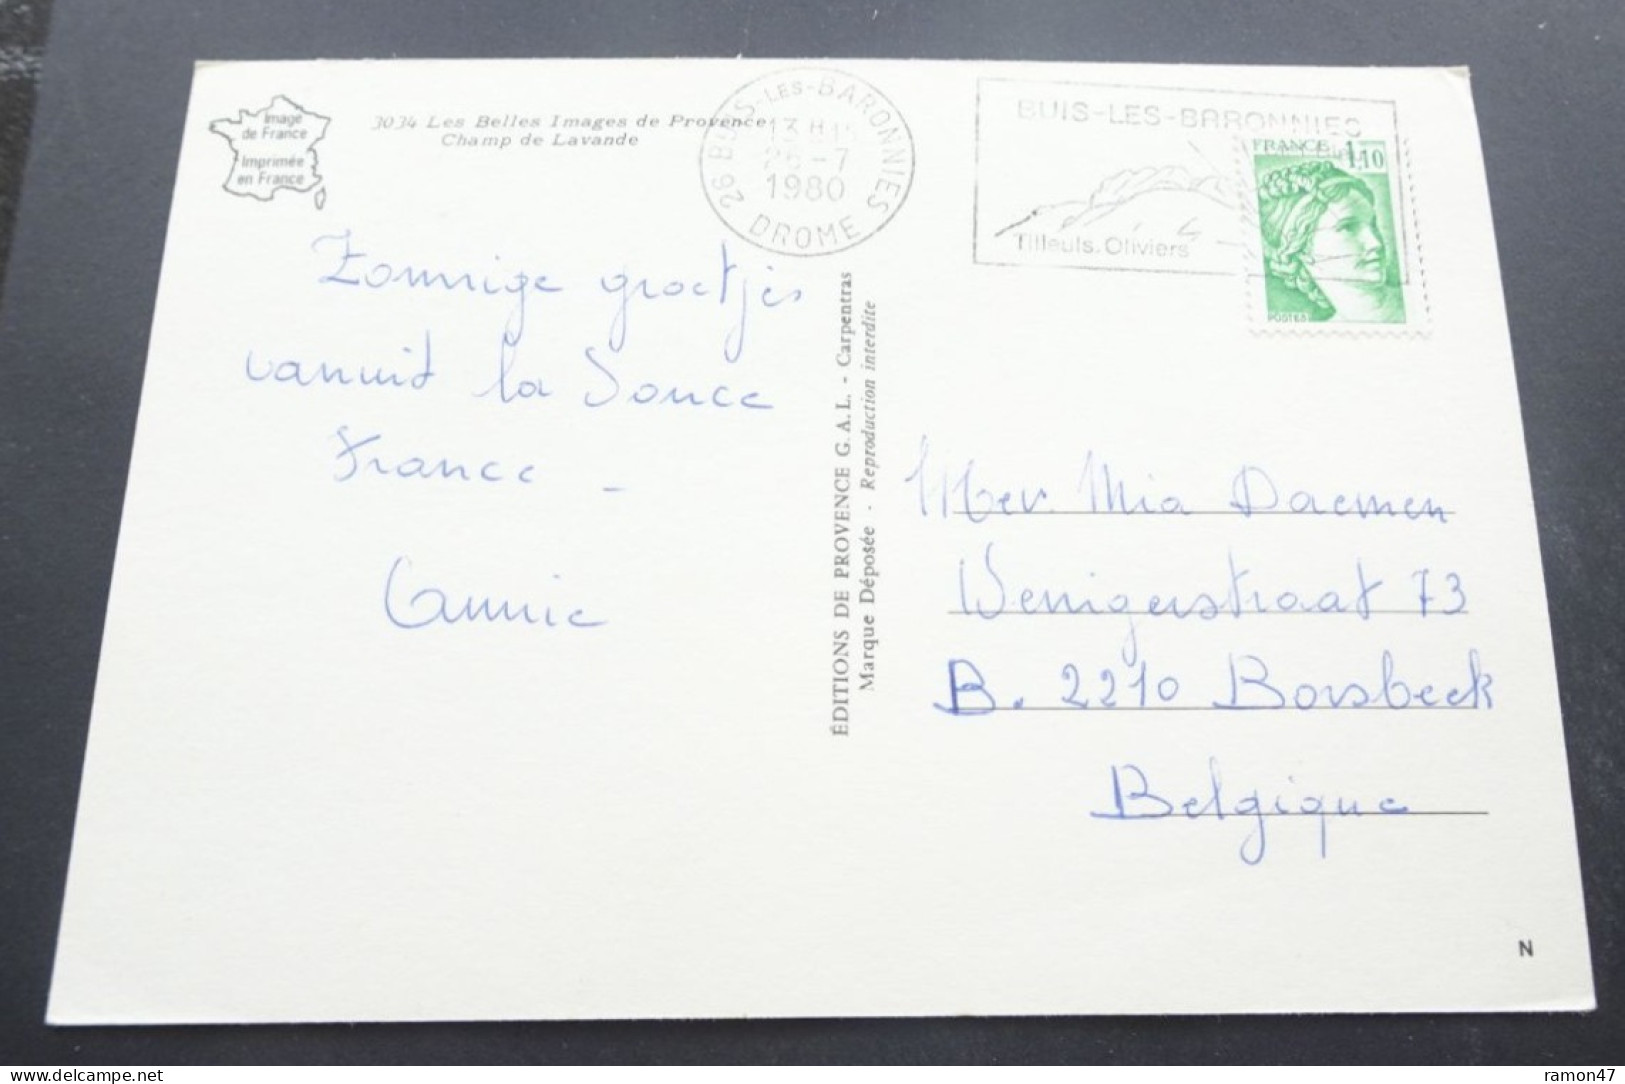 Image
de France
Imprimée
en France
3034 Les Belles Images de Provence
Champ de Lavande
26 BUIS-LES-BARONNIES
13H15
26-7
1980
DROME
BUIS-LES-BARONNIES
Tilleuls.Oliviers
FRANCE 1,10
POSTES
Zonnige groetjes
vanuit la Douce
France -
Annie
ÉDITIONS DE PROVENCE G.A.L. - Carpentras
Marque Déposée - Reproduction interdite
Mev. Mia Daemen
Wenigerstraat 73
B. 2210 Borsbeek
Belgique
N
ramon47